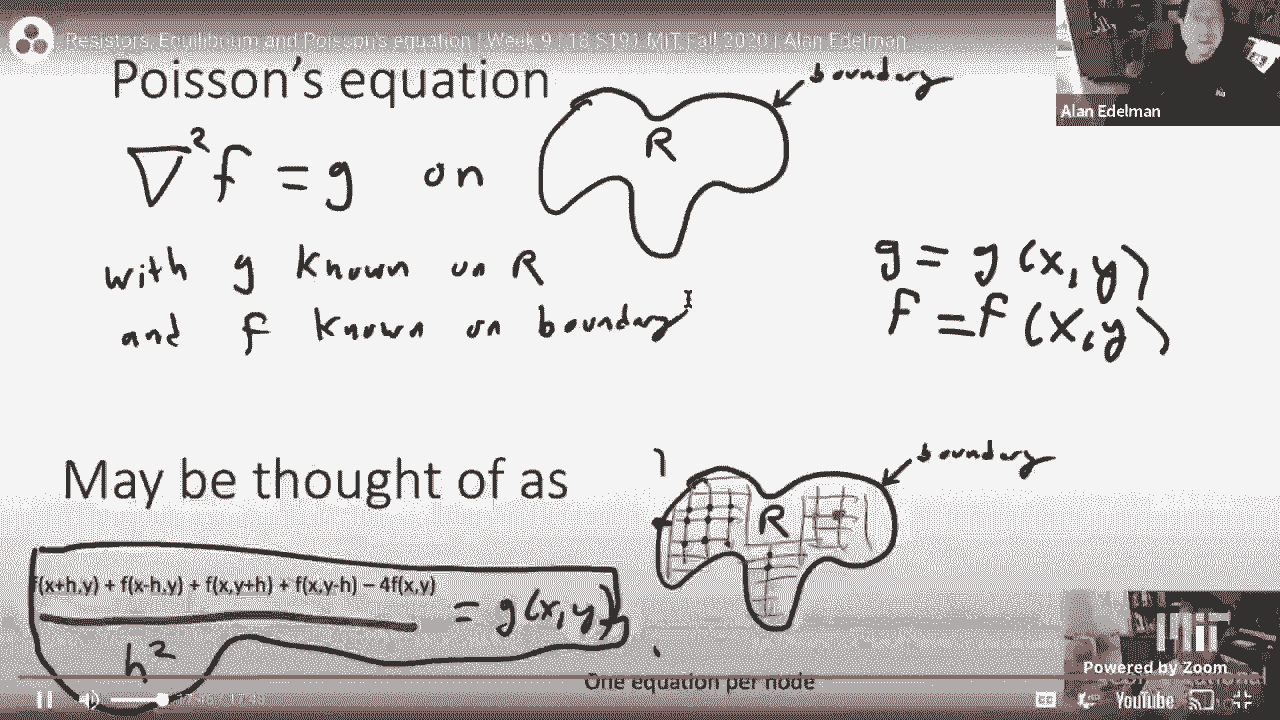 Resistors, Equilibrium and Poisson's equation | Week 9 | 18.S191 MIT Fall 2020 | Alan Edelman
Poisson's equation
boundary
R
∇²f = g on
with g known on R
and f known on boundary
g = g(x,y)
f = f(x,y)
Alan Edelman
May be thought of as
boundary
R
f(x+h,y) + f(x-h,y) + f(x,y+h) + f(x,y-h) – 4f(x,y)
= g(x,y)
h²
One equation per node
MIT
Powered by Zoom
CC
HD
YouTube